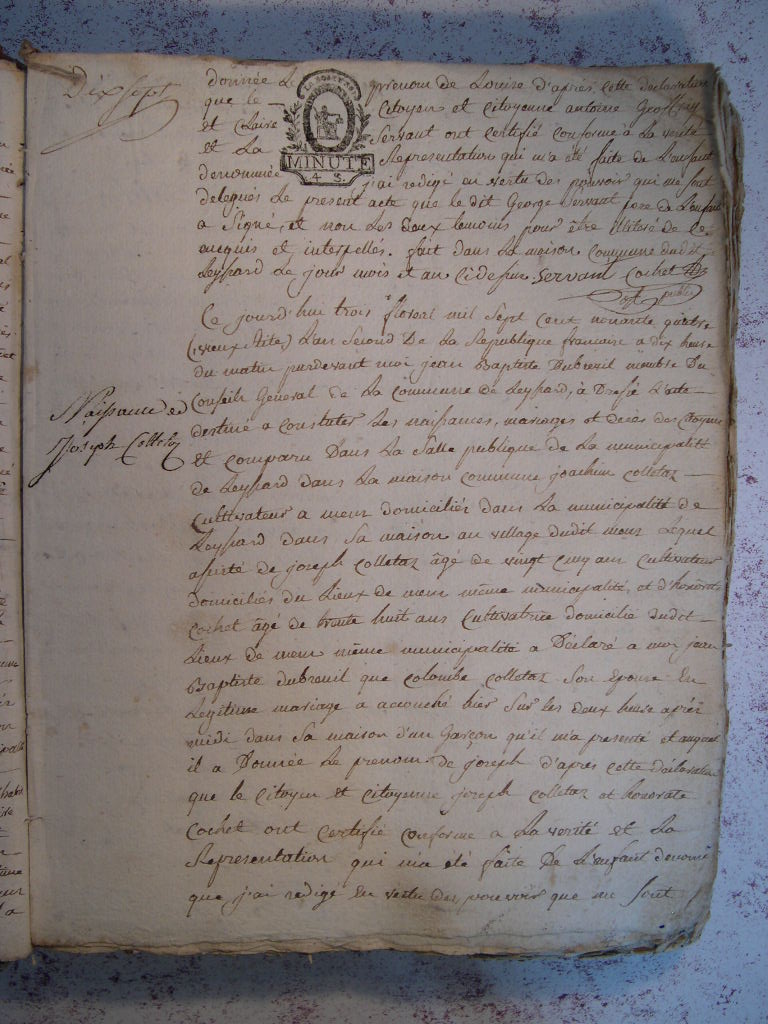 Dix sept
donnée Le prenom de Louise d'après cette declaration
que le Citoyen et Citoyenne antoine Geoffray
et Claire Servant ont certifié conforme à La verité
et La Representation qui m'a été faite de L'enfant
denommée j'ai redigé en vertu des pouvoir qui me sont
delegués Le present acte que Le dit George Servant pere de L'enfant
a Signé, et non Les deux temoins pour être illiteré de ce
enquis et interpellés. fait dans La maison Commune dudit
Leyssard Le jour mois et an cidessus Servant Cochet
off. public
LA
MINUTE
4 S.
Ce jourd'hui trois floreal mil Sept Cent nonante quatre
(vieux stile) L'an Second De La Republique francaise a dix heure
du matin pardevant moi jean Baptiste Dubreuil membre Du
Conseils General de La commune de Leyssard, à Dressé L'acte
destiné a constater Les naissances, mariages et Decès des Citoyens
Naissance de
Joseph Colletaz
et comparu Dans La Salle publique de La municipalité
de Leyssard dans La maison commune joachim colletaz
Cultivateur a menr domiciliér dans La municipalité de
Leyssard Dans Sa maison au village dudit menr Lequel
assisté de joseph Colletaz âgé de vingt cinq ans Cultivateur
domiciliés du Lieux de menr même municipalité, et d'honorate
Cochet âgé de trente huit ans Cultivatrice domicilié dudit
Lieux de menr même municipalité a Déclaré a moi jean
Baptiste dubreuil que colombe Colletaz Son Epouse En
Legitime mariage a accouché hier Sur les deux heure après
midi dans Sa maison d'un Garçon qu'il m'a presenté et auquel
il a Donnée Le prenom de joseph d'après cette déclaration
que le Citoyen et Citoyenne joseph Colletaz et honorate
Cochet ont Certifié Conforme a La verité et La
Representation qui m'a été faite De L'enfant denomé
que j'ai redigé En vertu des pouvoirs que me sont